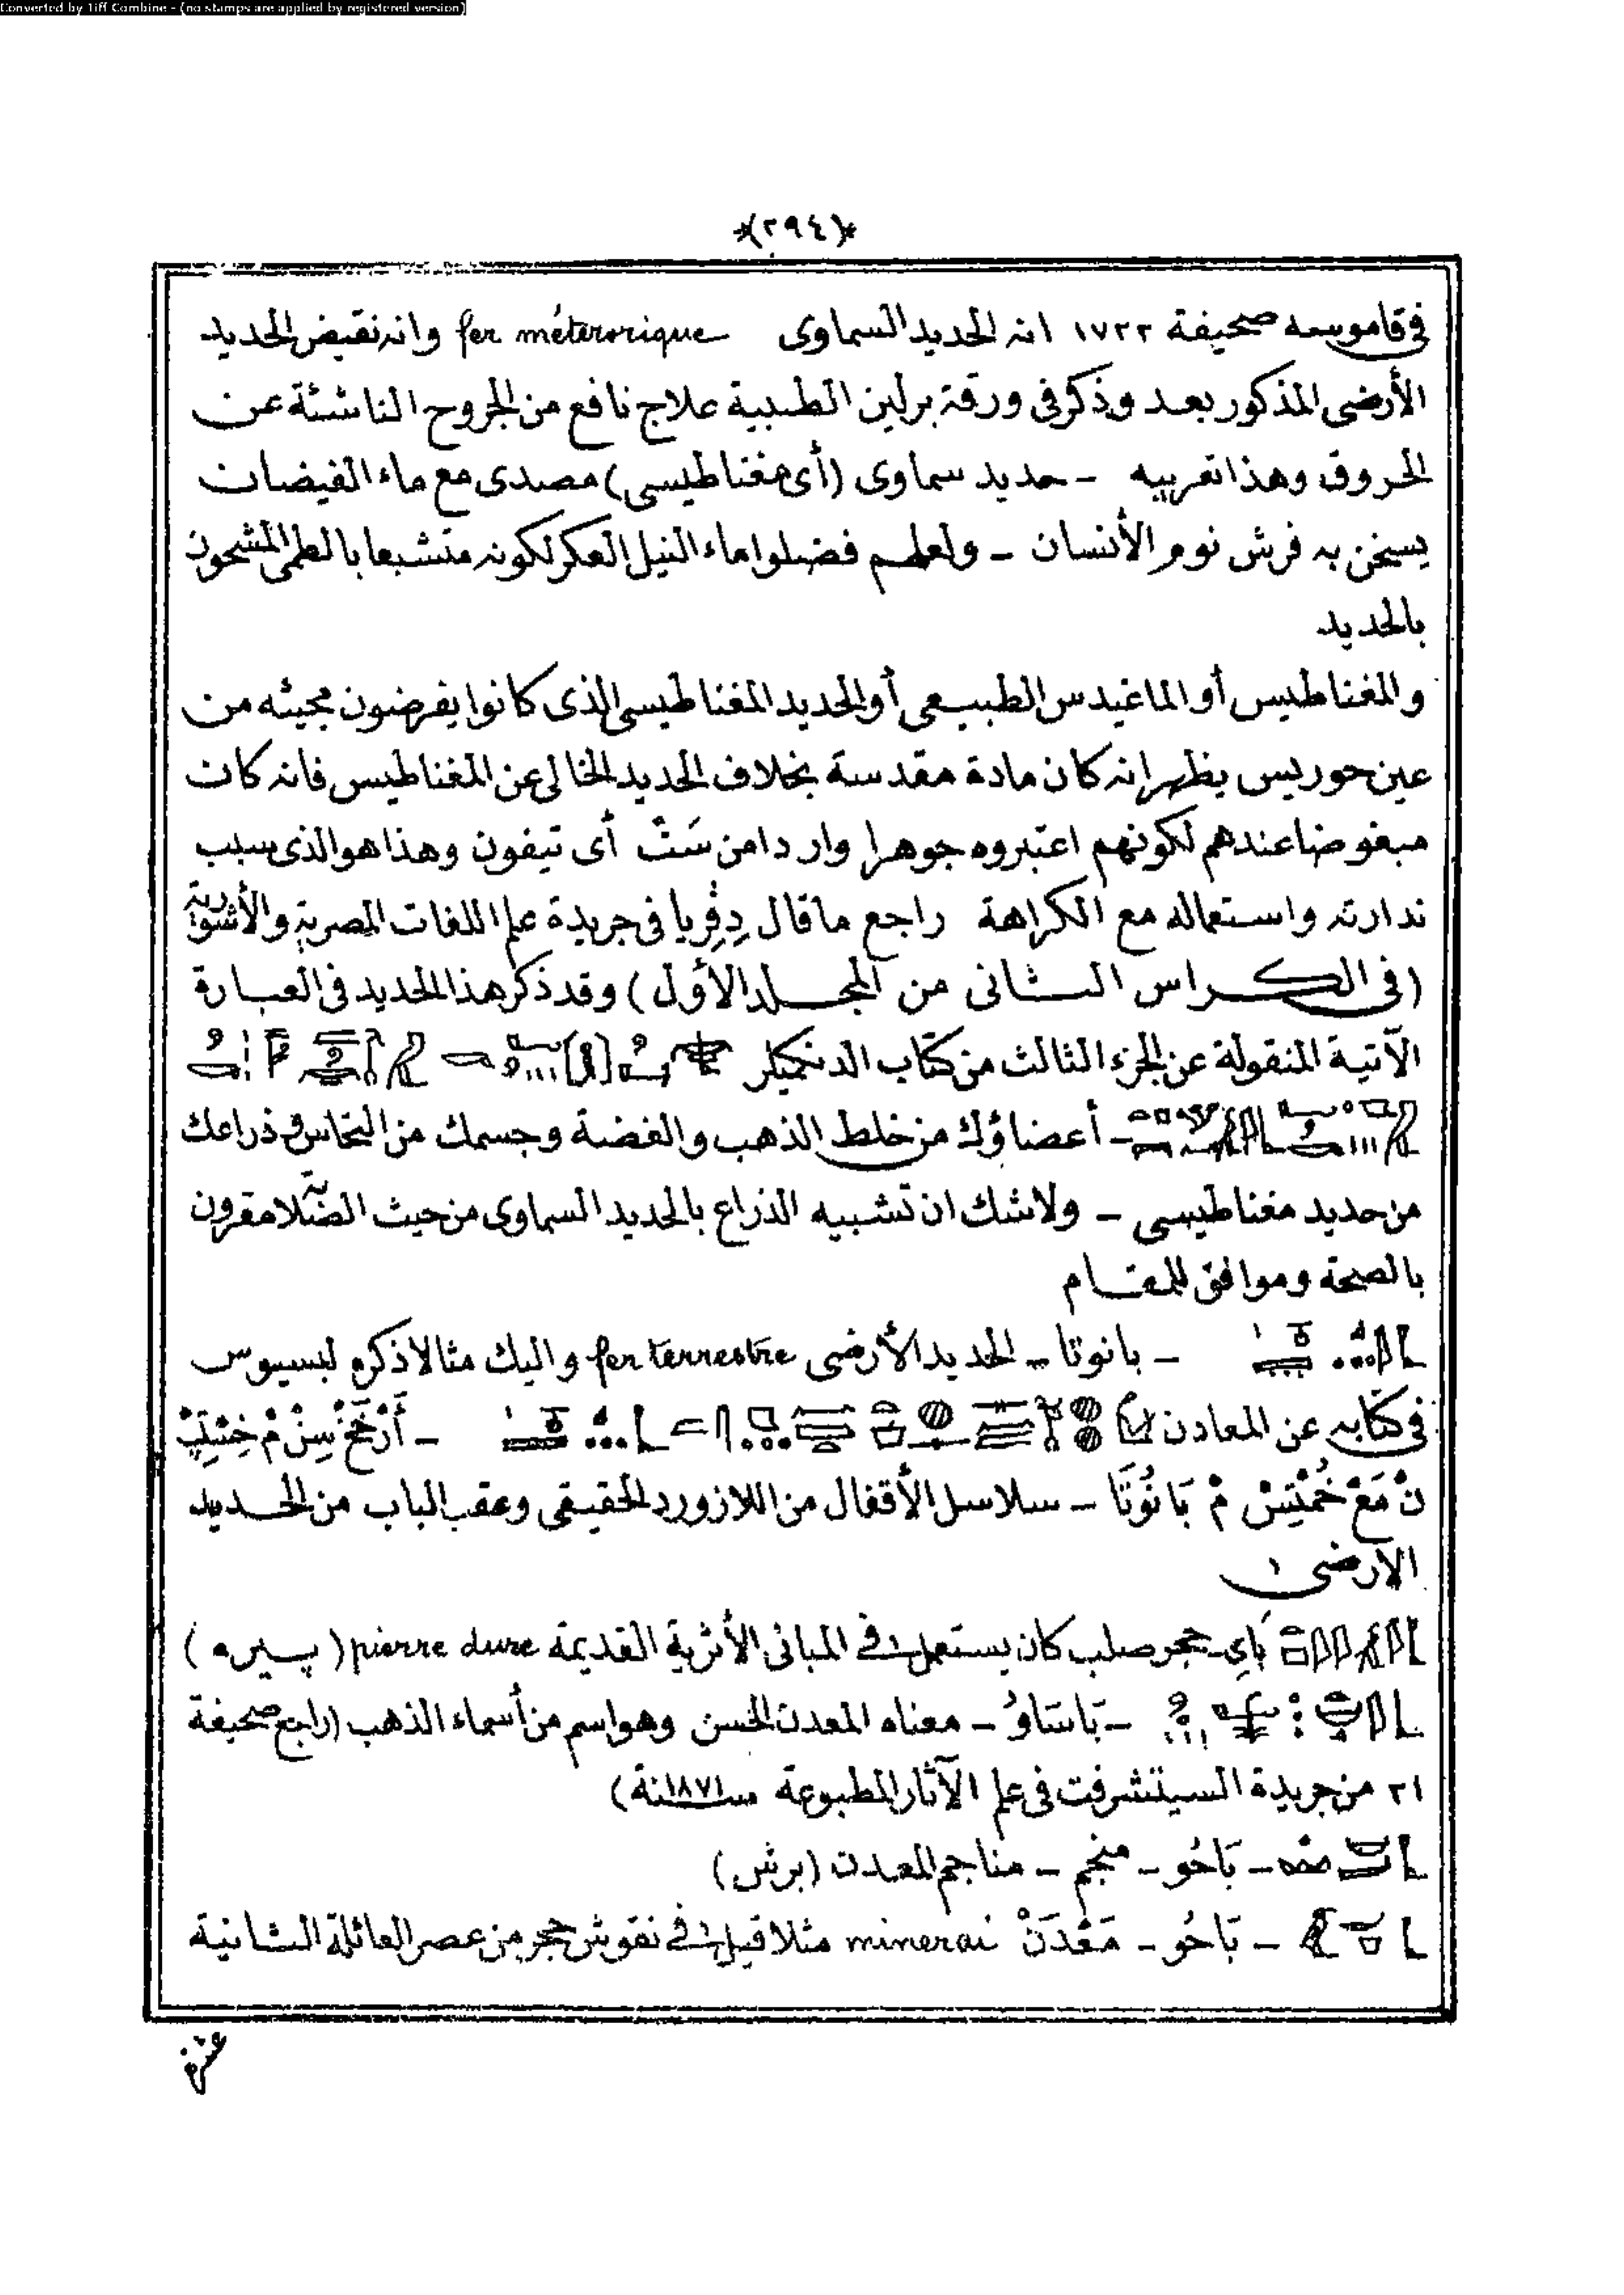 Converted by Tiff Combine - (no stamps are applied by registered version)
*(٢٩٤)*
فى قاموسه صحيفة ١٧٢٢ انه الحديد السماوى fer méterorique وانه نقيض الحديد
الأرضى المذكور بعد وذكر فى ورقة برلين الطبية علاج نافع من الجروح الناشئة عن
الحروق وهذا تعريبه - حديد سماوى (أى مغناطيسى) مصدى مع ماء الفيضان
يسخن به فرش نوم الأنسان - ولعلهم فضلوا ماء النيل العكر لكونه متشبعا بالطمى المشحون
بالحديد
والمغناطيس أو الماغيدس الطبيعى أو الحديد المغناطيسى الذى كانوا يفرضون مجيئه من
عين حوريس يظهر انه كان مادة مقدسة بخلاف الحديد الخالى عن المغناطيس فانه كان
مبغوضا عندهم لكونهم اعتبروه جوهرا واردا من سَتْ أى تيفون وهذا هو الذى سبب
ندارته واستعماله مع الكراهة راجع ما قال دِڤِريا فى جريدة علم اللغات المصرية والأشورية
(فى الكراس الثانى من المجلد الأول) وقد ذكر هذا الحديد فى العبارة
الآتية المنقولة عن الجزء الثالث من كتاب الدنكميلر
- أعضاؤك من خلط الذهب والفضة وجسمك من النحاس وذراعك
من حديد مغناطيسى - ولا شك ان تشبيه الذراع بالحديد السماوى من حيث الصلابة مقرون
بالصحة وموافق للمقام
- بانوتا - الحديد الأرضى fer terrestre واليك مثالا ذكره لبسيوس
فى كتابه عن المعادن -
نْ مَعْ خُمْتِسْ مْ بَانُوتَا - سلاسل الأقفال من اللازورد الحقيقى وعقب الباب من الحديد
الأرضى
بَاىِ - حجر صلب كان يستعمل فى المبانى الأثرية القديمة pierre dure (پييره)
- بَانَاوُ - معناه المعدن الحسن وهو اسم من أسماء الذهب (راجع صحيفة
٢١ من جريدة السيتشرفت فى علم الآثار المطبوعة سنة ١٨٧١)
- بَاحُو - منجم - مناجم المعدن (برش)
- بَاحُو - مَعْدَنْ minerai مثلا قيل فى نقوش حجر من عصر العائلة الثانية
عشرة